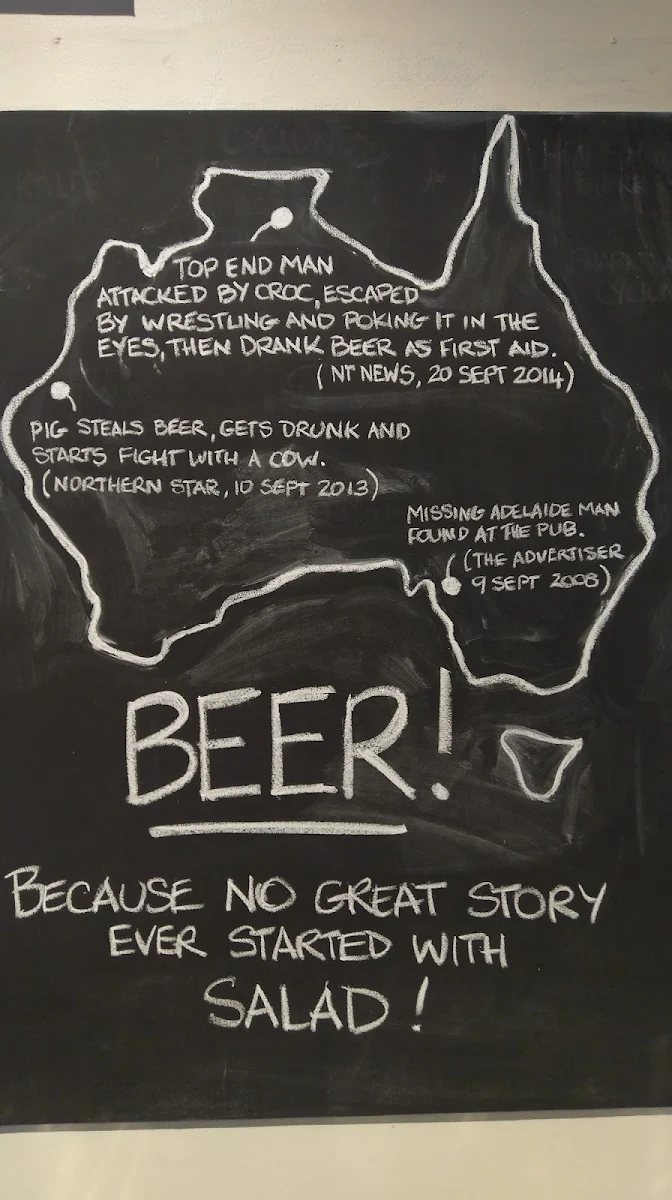 TOP END MAN
ATTACKED BY CROC, ESCAPED
BY WRESTLING AND POKING IT IN THE
EYES, THEN DRANK BEER AS FIRST AID.
(NT NEWS, 20 SEPT 2014)
PIG STEALS BEER, GETS DRUNK AND
STARTS FIGHT WITH A COW.
(NORTHERN STAR, 10 SEPT 2013)
MISSING ADELAIDE MAN
FOUND AT THE PUB.
(THE ADVERTISER
9 SEPT 2008)
BEER!
BECAUSE NO GREAT STORY
EVER STARTED WITH
SALAD!